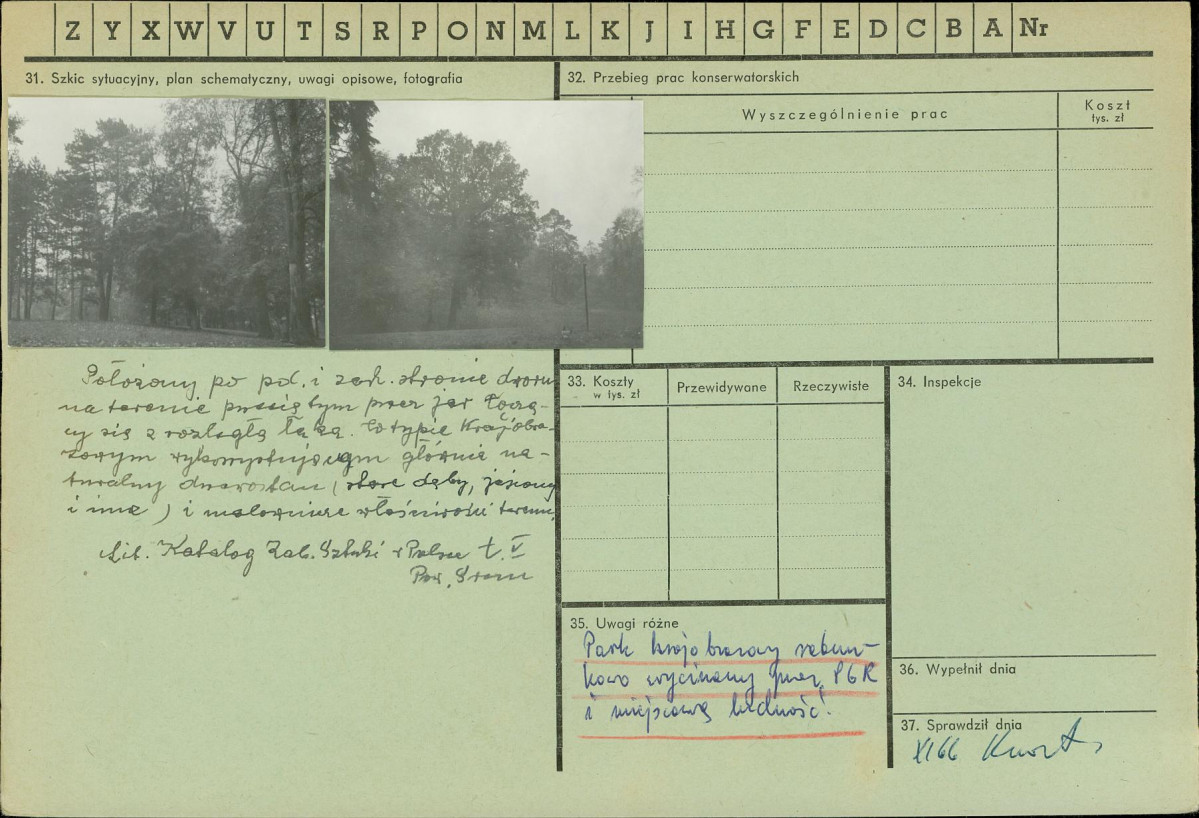 Z Y X W V U T S R P O N M L K J I H G F E D C B A Nr
31. Szkic sytuacyjny, plan schematyczny, uwagi opisowe, fotografia
32. Przebieg prac konserwatorskich
Wyszczególnienie prac
Koszt
tys. zł
Położony po pd. i zach. stronie dworu
na terenie przeciętym przez jar łączą-
cy się z rozległą łąką. W typie krajobra-
zowym wykorzystującym głównie na-
turalny drzewostan (stare dęby, jesiony
i inne) i malownicze właściwości terenu.
Lit. Katalog Zab. Sztuki w Polsce t. V
Pow. Śrem
33. Koszty
w tys. zł
Przewidywane
Rzeczywiste
34. Inspekcje
35. Uwagi różne
Park krajobrazowy rabun-
kowo wycinany przez PGR
i miejscową ludność!
36. Wypełnił dnia
37. Sprawdził dnia
XI 66